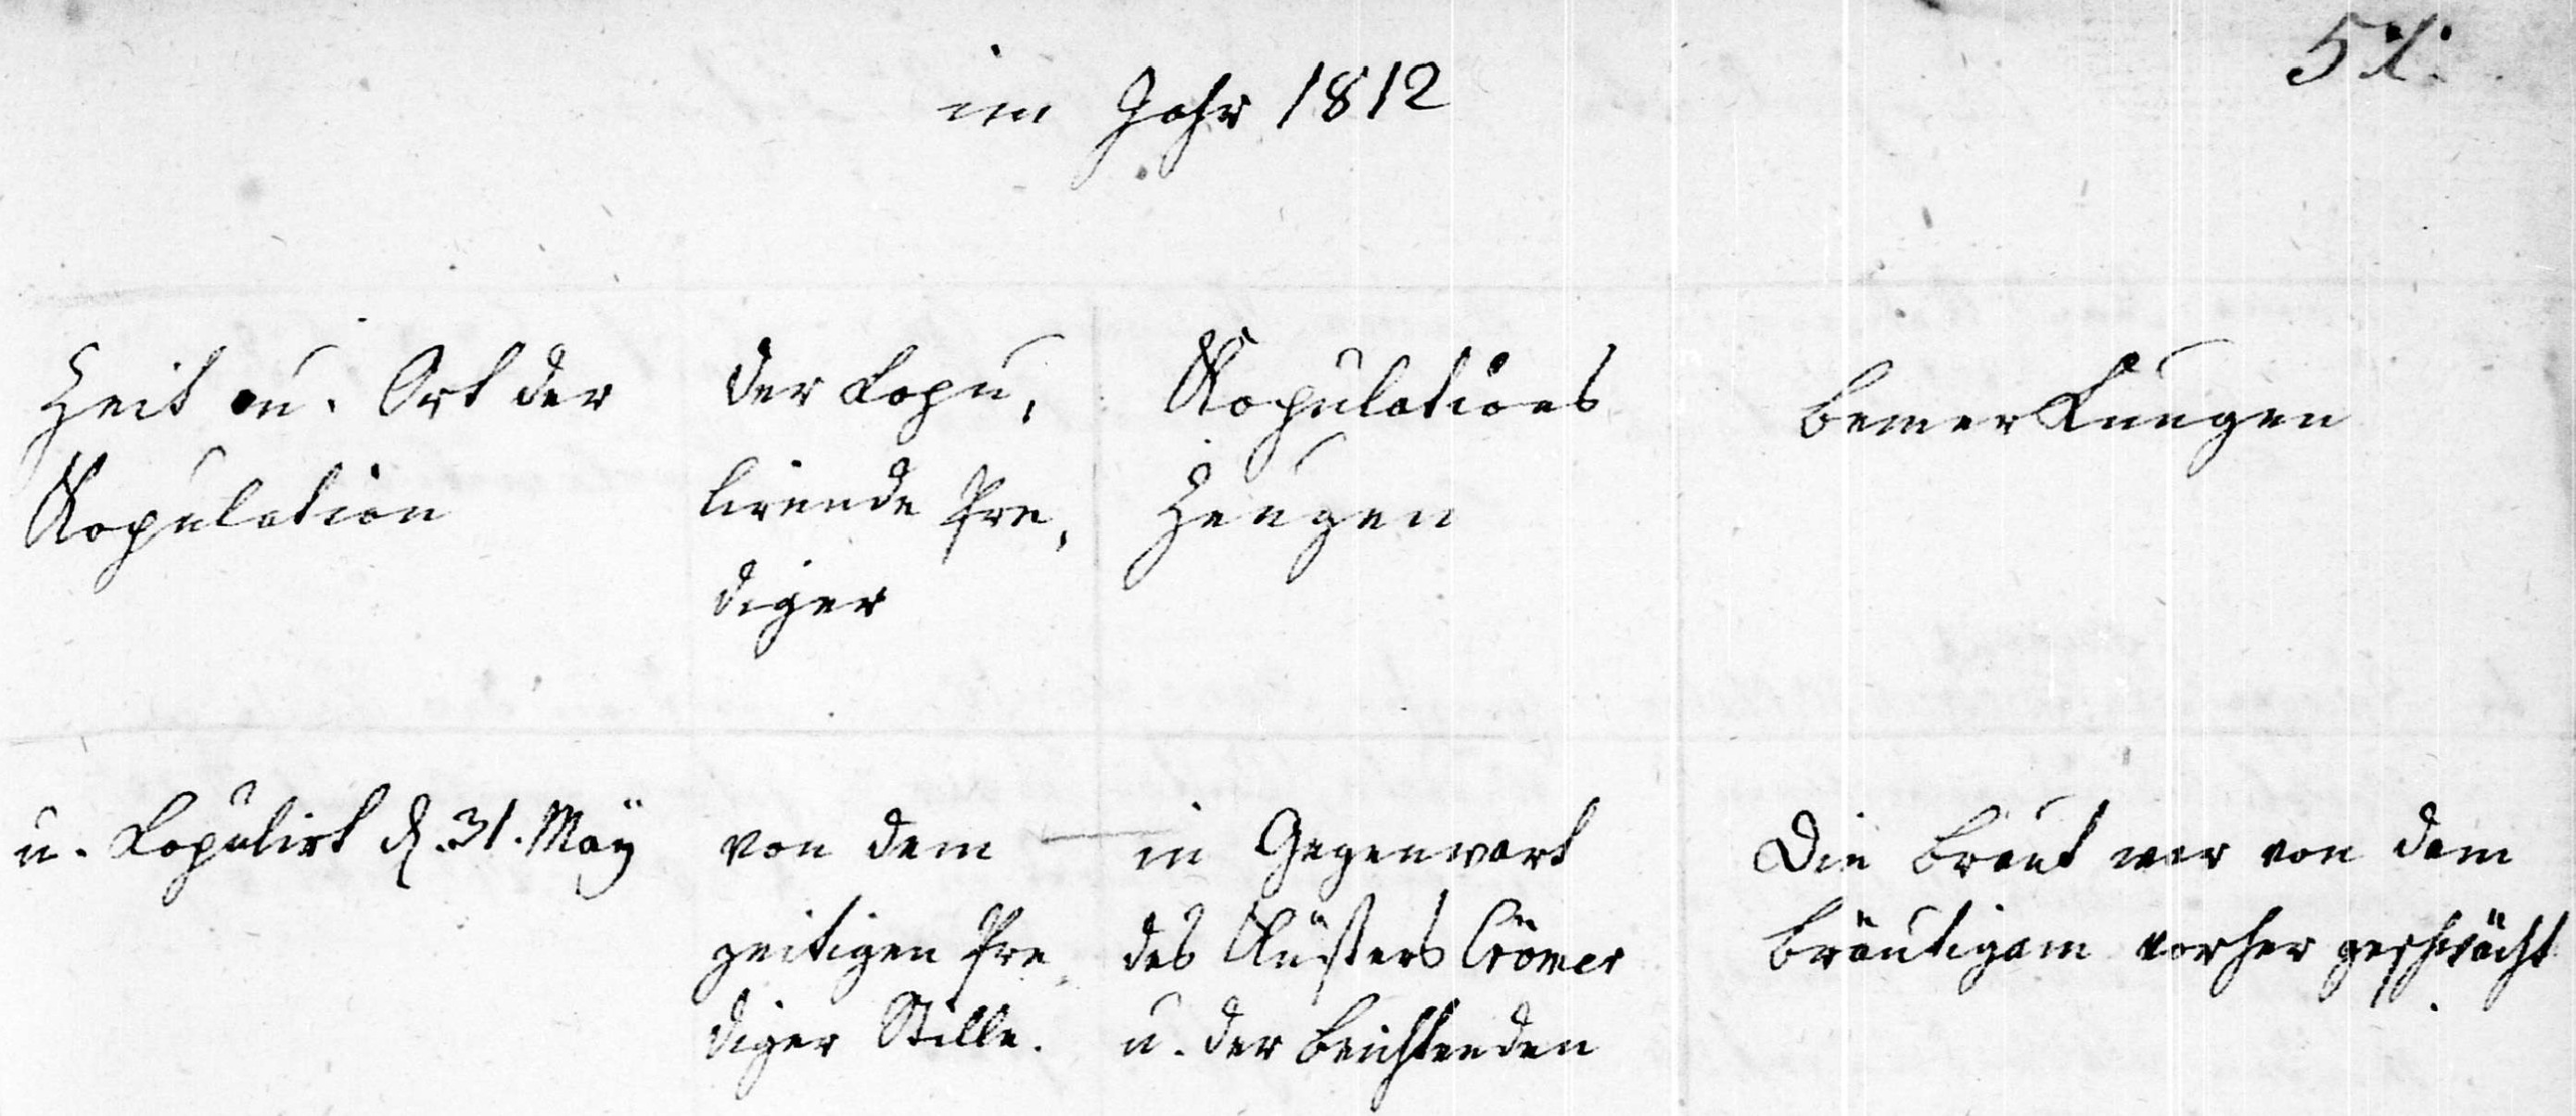 im Jahr 1812
Zeit u. Ort der
Kopulation
der kopu,
lirende Pre,
diger
Kopulations
Zeugen
Bemerkungen
u. kopulirt d. 31. Maÿ
von dem
zeitigen Pre,
diger Stille.
in Gegenwart
des Küsters Crömer
u. der Beichtenden
Die Braut war von dem
Bräutigam vorher geschwächt